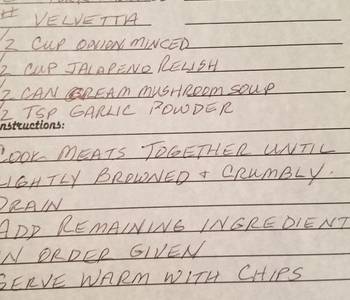 # VELVETTA
/2 CUP ONION MINCED
/2 CUP JALAPENO RELISH
/2 CAN CREAM MUSHROOM SOUP
/2 TSP GARLIC POWDER
nstructions:
COOK MEATS TOGETHER UNTIL
LIGHTLY BROWNED & CRUMBLY.
DRAIN
ADD REMAINING INGREDIENT
IN ORDER GIVEN
SERVE WARM WITH CHIPS